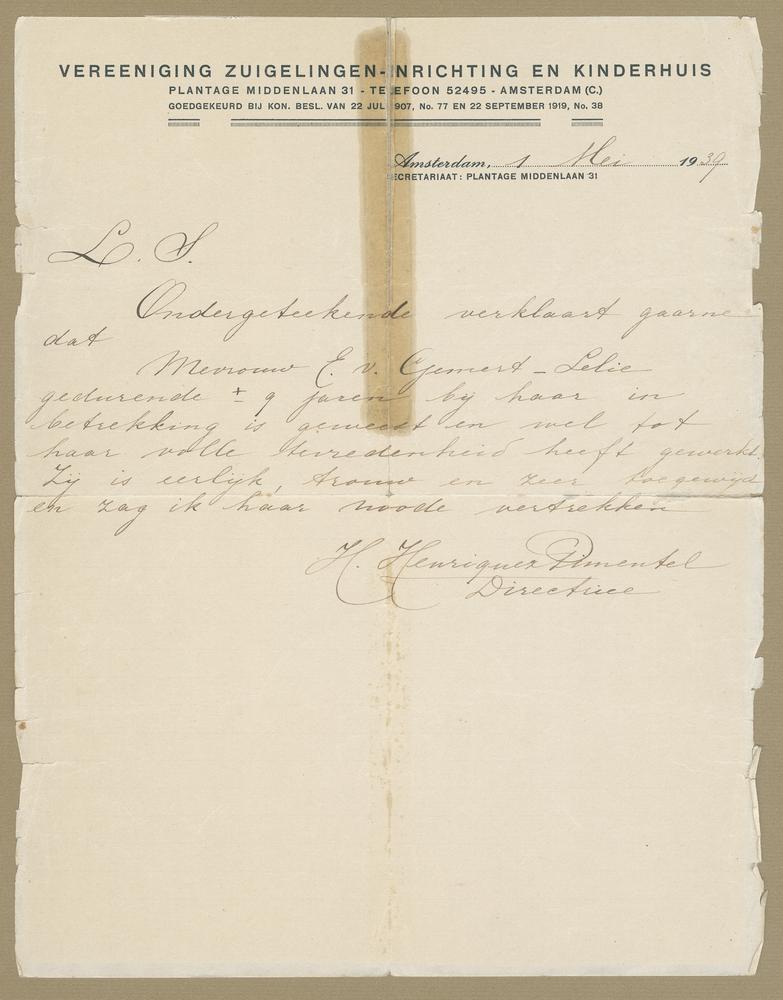 VEREENIGING ZUIGELINGEN-INRICHTING EN KINDERHUIS
PLANTAGE MIDDENLAAN 31 - TELEFOON 52495 - AMSTERDAM (C.)
GOEDGEKEURD BIJ KON. BESL. VAN 22 JULI 1907, No. 77 EN 22 SEPTEMBER 1919, No. 38
Amsterdam, 1 Mei 1939
SECRETARIAAT: PLANTAGE MIDDENLAAN 31
L. S.
Ondergeteekende verklaart gaarne
dat
Mevrouw E. v. Gemert - Lelie
gedurende ± 9 jaren bij haar in
betrekking is geweest en wel tot
haar volle tevredenheid heeft gewerkt.
Zij is eerlijk, trouw en zeer toegewijd
en zag ik haar noode vertrekken
H. Henriquez Pimentel
Directrice